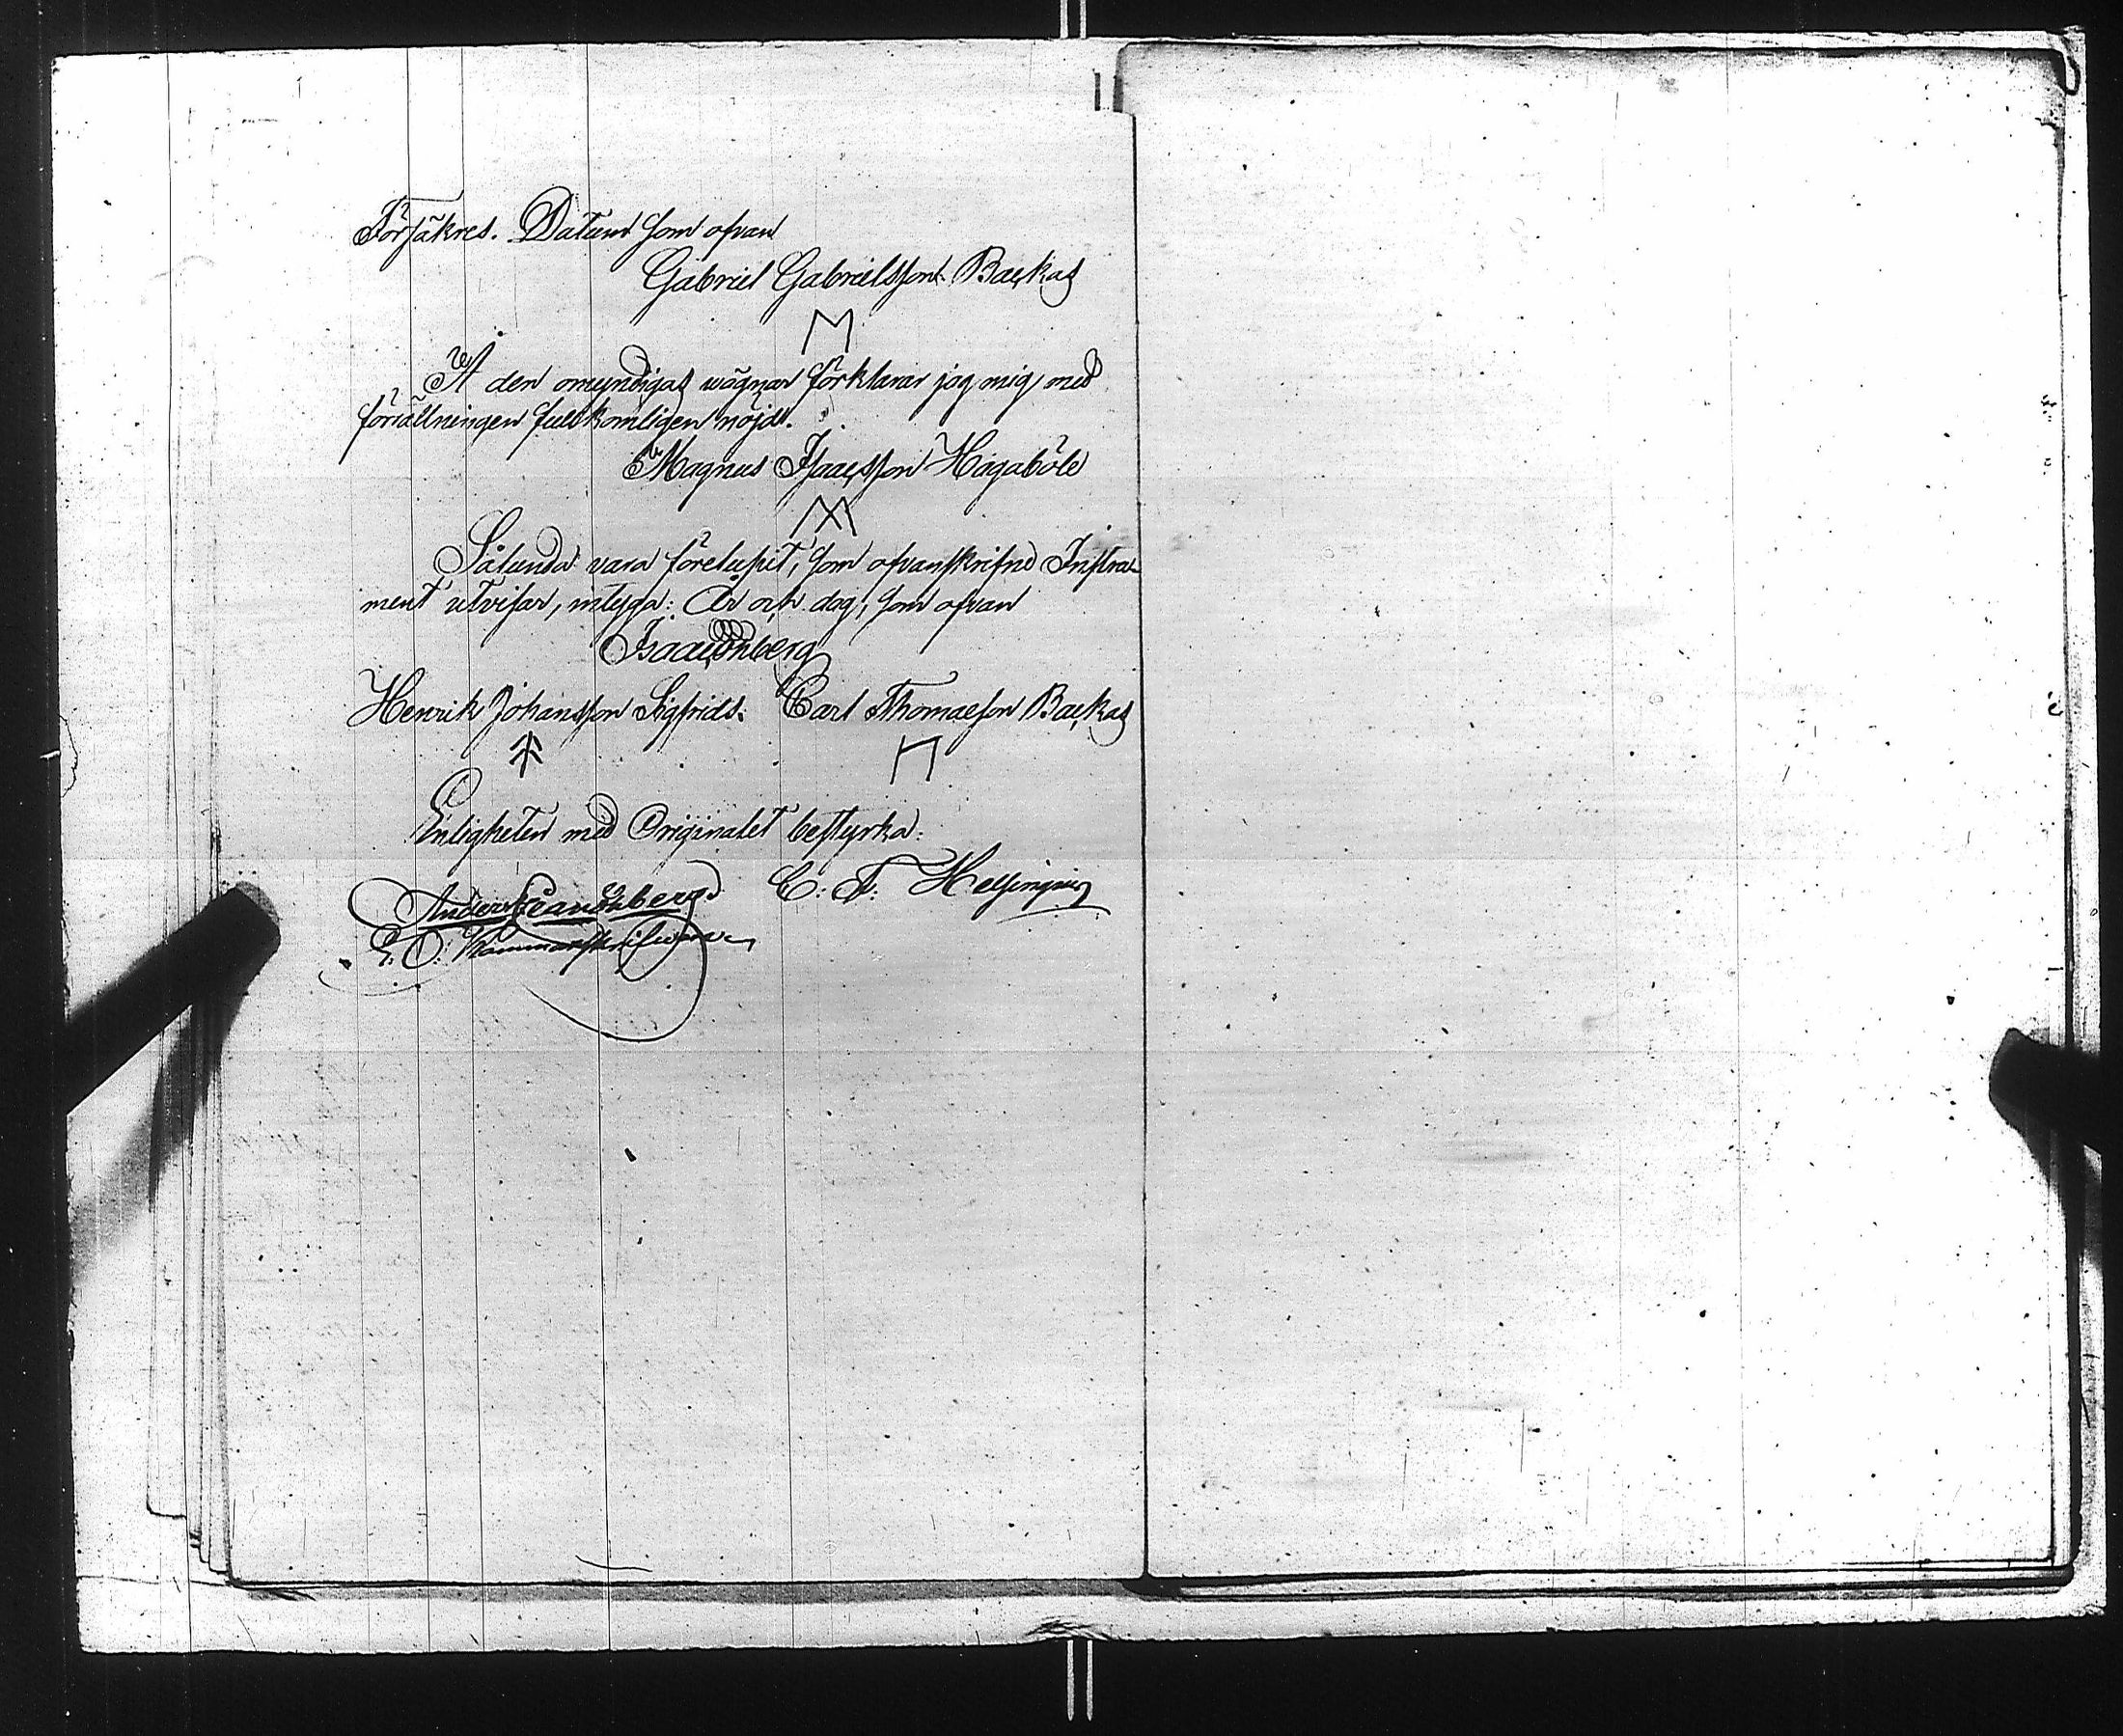 Försäkres. Datum som ofvan
Gabriel Gabrielsson Backas
Å den omyndigas wägnar förklarar jag mig med
förrättningen fullkomligen nöjd.
Magnus Isacsson Hägaböle
Sålunda vara förelupit, som ofvanskrifne Instru-
ment utvisar, intyga: År och dag, som ofvan
Isaac
Henrik Johansson Sigfrids. Carl Thomasson Backas
Enligheten med Originalet bestyrka:
Anders C: F: Helsingius
E. O. Kammarskrifvare